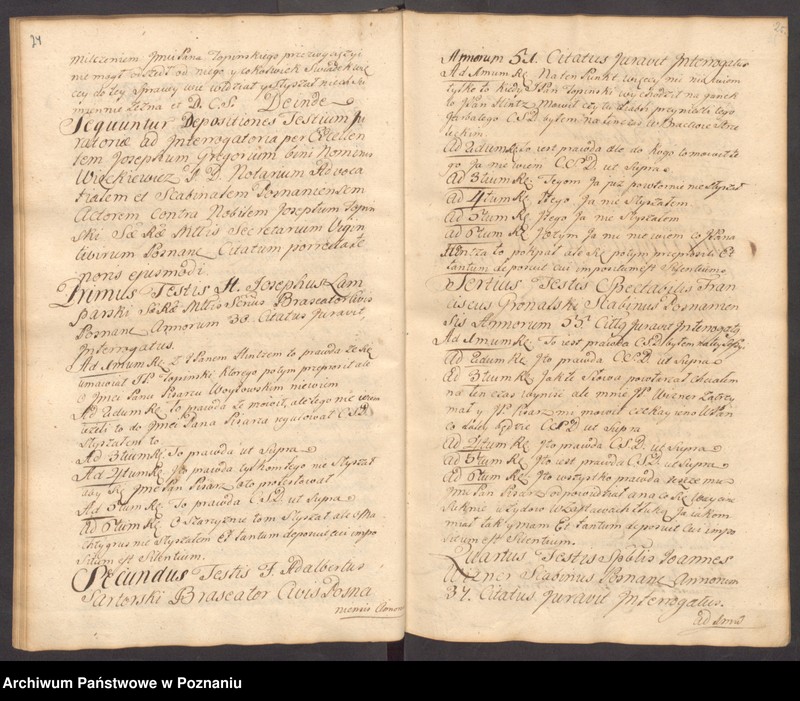 24
milczeniem Jmci Pana Łopinskiego przezwyciężyć
nie mogł odszedł od niego y cokolwiek Swiadek wię
cey do tey Sprawy wie widział y słyszał niech
zezna et D. C. S. Deinde
Sequuntur Depositiones Testium Ju
ratoriæ ad Interrogatoria per Excellen
tem Josephum Gregorium bini Nominis
Więckiewicz J. D. Notarium Advoca
tialem et Scabinalem Posnaniensem
Actorem Contra Nobilem Josephum Łopin
ski Sæ Ræ Mttis Secretarium Vigin
tivirum Posnan: Citatum porrectarum
nons ejusmodi.
Primus Testis H. Josephus Lam
parski Sæ Ræ Mttis Servus Braseator Civis
Posnan: Annorum 38. Citatus Juravit,
Interrogatus.
Ad 1mum Rę Z JP Panem Hintzem to prawda że Rę
umawiał JP. Łopinski ktorego potym przeprosił ale
o Jmci Panu Pisarzu Woytowskim niewiem
Ad 2dum Rę to prawda że mowił, ale tego nie wiem
ieżeli to do Jmci Pana Pisarza C.S.D.
Słyszałem to
Ad 3tium Rę To prawda ut Supra
Ad 4tum Rę Jto prawda tylkom tego nie Słyszał
aby Się Jmć Pan Pisarz o to protestował
Ad 5tum Rę To prawda C.S.D. ut Supra
Ad 6tum Rę O Staryznie tom Słyszał ale o
nie Słyszałem Et tantum deposuit cui impo
situm est Silentium.
Secundus Testis F. Adalbertus
Sartorski Braseator Civis Posna
niensis Annor
25
Annorum 51. Citatus Juravit Interrogatus
Ad 1mum Rę Na ten Punkt więcey nic nie wiem
tylko to kiedy JPan Łopinski wychodził na ganek
to JPan Hintz Mowił czy tu diabli przyniesli tego
garbatego C.S.D. byłem na tenczas w Bractwie Strze
leckim.
Ad 2dum Rę To iest prawda ale do kogo to mowił te
go Ja nie wiem C.S.D. ut Supra
Ad 3tium Rę Tegom Ja już powtornie nie Słyszał
Ad 4tum Rę Jtego Ja nie Słyszałem
Ad 5tum Rę Jtego Ja nie Słyszałem
Ad 6tum Rę Jotym Ja nie wiem co JPana
Hintza to potykał ale Się potym przeprosili Et
tantum deposuit cui impositum est Silentium
Tertius Testis Spectabilis Fran
ciscus Gronalski Scabinus Posnanien
sis Annorum 55. Cittus Juravit Interrogatus
Ad 1mum Rę To iest prawda C.S.D. byłem na ty
Ad 2dum Rę Jto prawda C.S.D. ut Supra
Ad 3tium Rę Jak te Słowa powtarzał chciałem
na ten czas wynisc ale mnie JP. Wizner zatrzy
mał y JP. Pisarz mi mowił czekay no WPan
co daley będzie C.S.D. ut Supra
Ad 4tum Rę Jto prawda C.S.D. ut Supra
Ad 5tum Rę Jto iest prawda C.S.D. ut Supra
Ad 6tum Rę Jto wszystko prawda ieszcze mu
Jmci Pan Pisarz odpowiedział a na co Się
Suknie wszydzo w zastawach ia iakom
miał tak y mam Et tantum deposuit cui impo
situm est Silentium.
Quartus Testis Sptblis Joannes
Wizner Scabinus Posnan: Annorum
37. Citatus Juravit Interrogatus.
ad 1mum
Archiwum Państwowe w Poznaniu